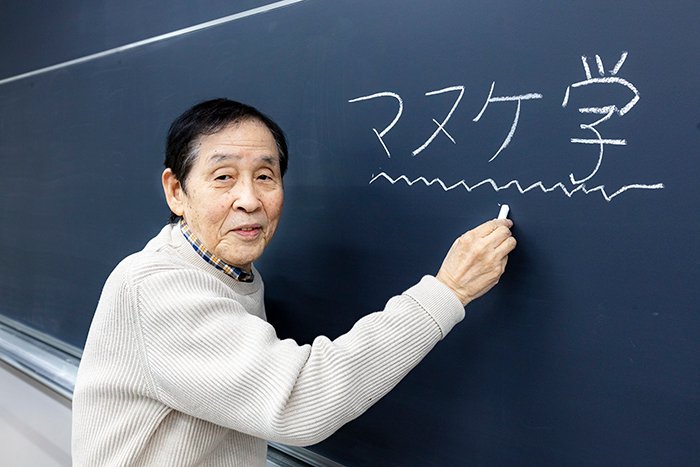 マヌケ学